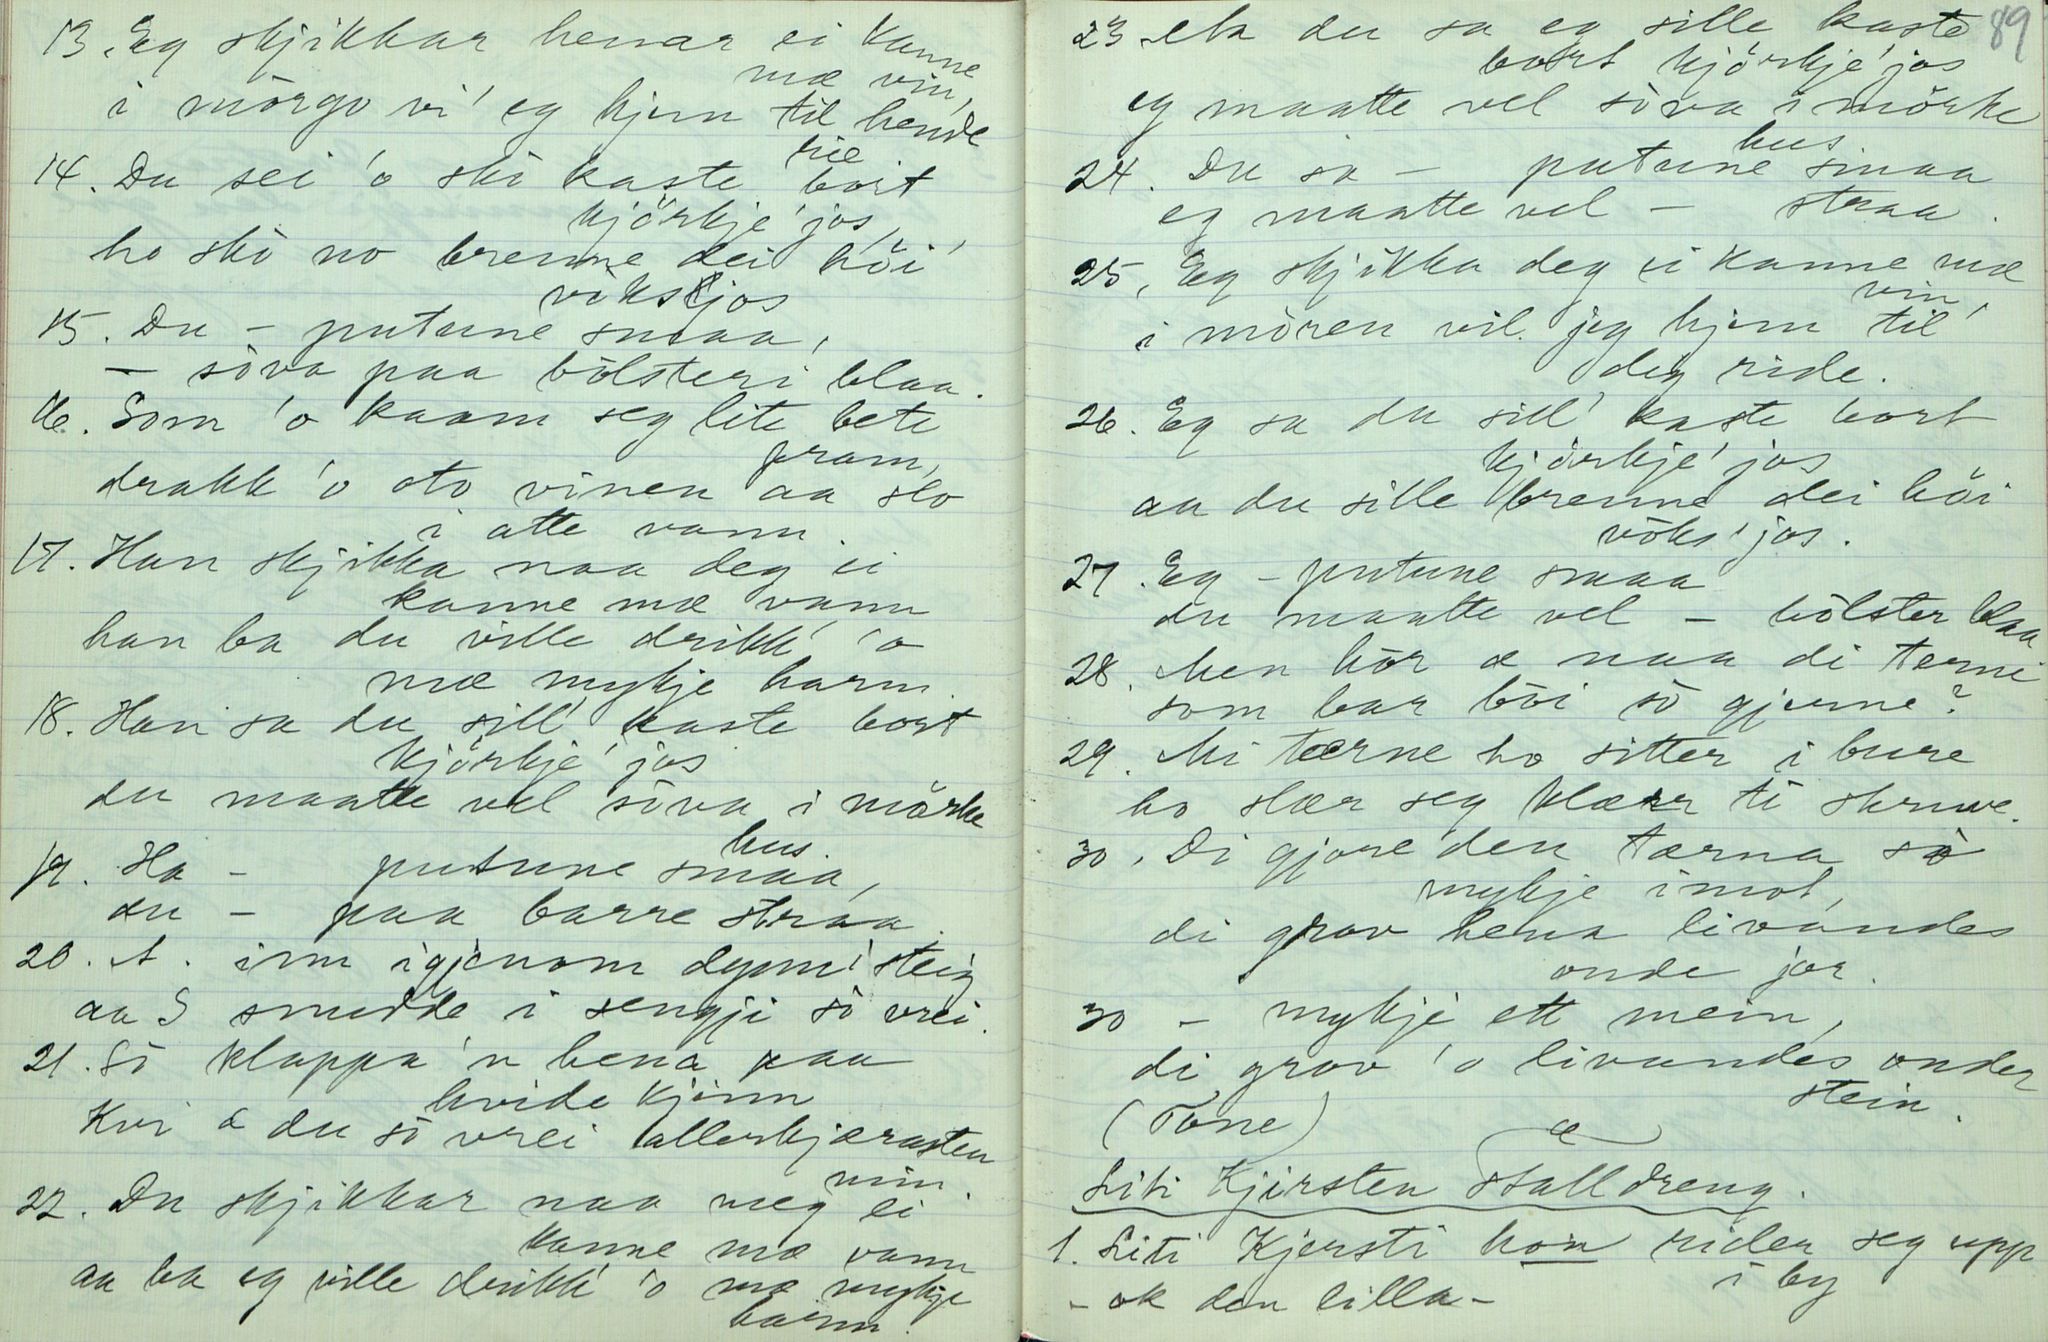 13. Eg skjikkar henar ei kanne
mæ vin,
i mörgo vi' eg hjem til hende
rie
14. Du sei 'o ski kaste bort
kjörkje'jos,
ho ski no brenne dei höi'
vöksljos
15. Du - putune smaa,
- söva paa bölsteri blaa.
16. Som 'o kaam seg lite bete
fram,
drakk 'o oto vinen aa slo
i atte vann
17. Han skjikka naa deg ei
kanne mæ vann
han ba du ville drikk' 'o
mæ mykje harm.
18. Han sa du sill' kaste bort
kjörkje'jos
du maatte vel söva i mörke
hus.
19. Ha - putune smaa,
du - paa barre straa.
20. A. inn igjenom dynn' steig
aa S snudde i sengji sö vrei.
21. Sö klappa 'n hena paa
hvide kjinn
Kvi æ du sö vrei allerkjærasten
min.
22. Du skjikkar naa meg ei
kanne mæ vann
aa ba eg ville drikk' 'o mæ mykje
harm.
89
23 du sa eg sille kaste
bort kjörkje'jos
eg maatte vel söva i mörke
hus
24. Du sa - putune smaa
eg maatte vel - straa.
25. Eg skjikka deg ei kanne mæ
vin,
i mören vil jeg hjem til
deg ride.
26. Eg sa du sill' kaste bort
kjörkje'jos
aa du sille brenne dei höi
vöks'jos.
27. Eg - putune smaa
du maatte vel - bölster blaa
28. Men hör æ naa di terni
som bar böi sö gjerne?
29. Mi tærne ho sitter i bure
ho slær seg klæer ti skruve.
30. Di gjore den tærna sö
mykje imot,
di grov hena livandes
onde jor.
30 - mykje ett mein,
di grov 'o livandes onder
stein.
(Tone)
æ
Liti Kjersten stalldreng.
1. Liti Kjersti hon rider seg upp
i by
- ok den lilla -